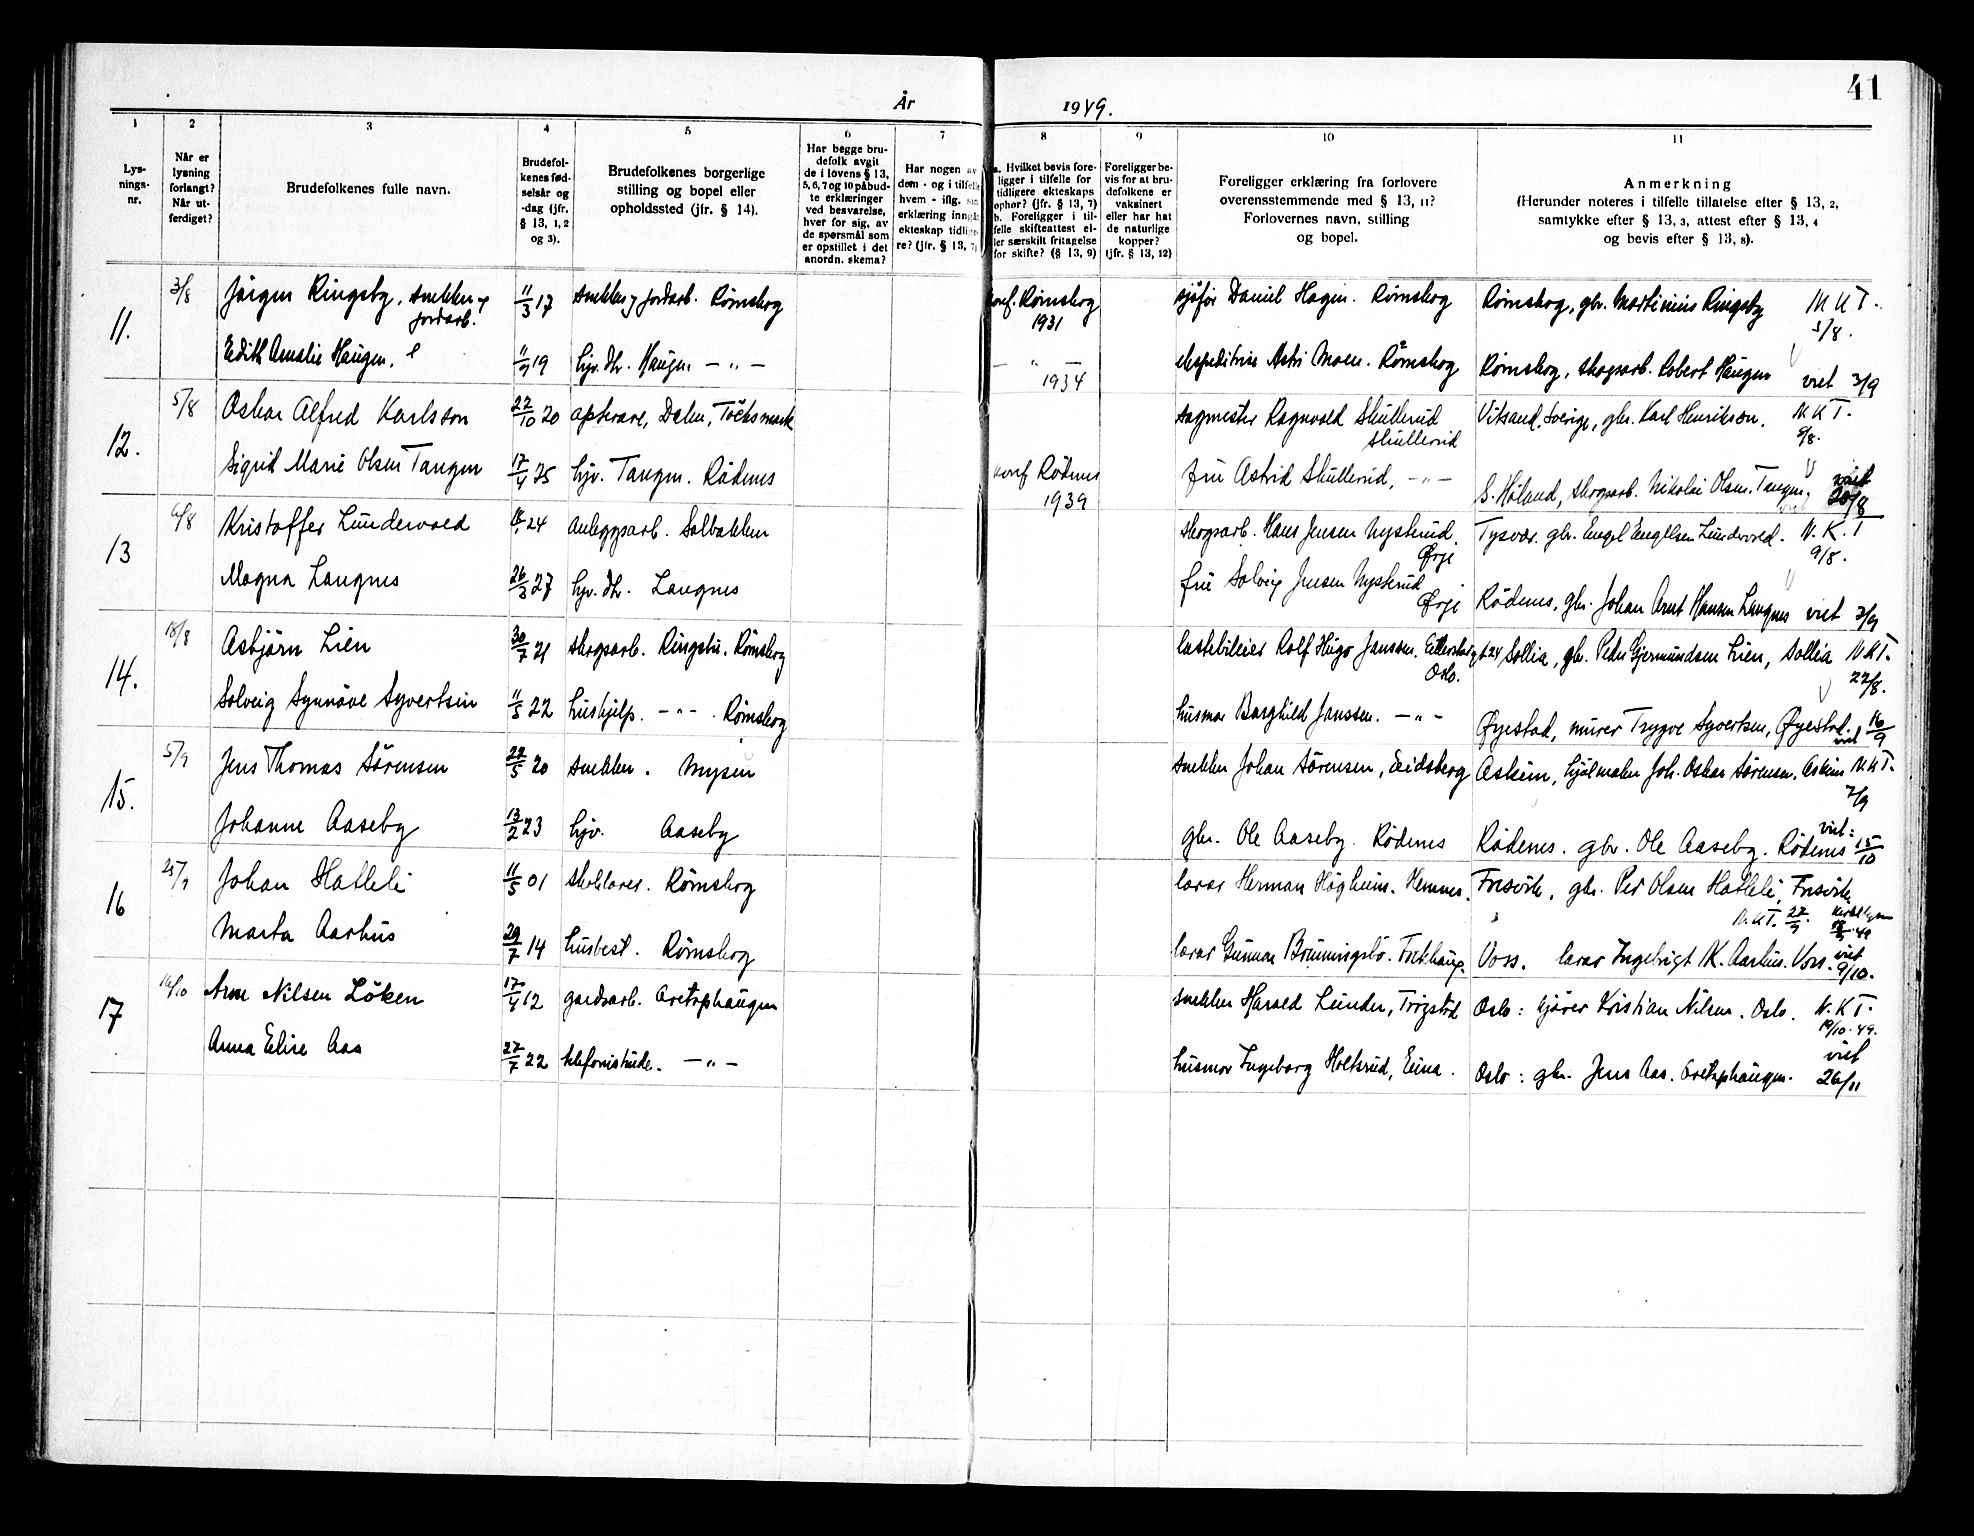 41
År 1949.
1 2 3 4 5 6 7 8 9 10 11
Lys-
nings-
nr.
Når er
lysning
forlangt?
Når ut-
ferdiget?
Brudefolkenes fulle navn.
Brudefol-
kenes fød-
selsår og
-dag (jfr.
§ 13, 1, 2
og 3).
Brudefolkenes borgerlige
stilling og bopel eller
opholdssted (jfr. § 14).
Har begge bru-
defolk avgit
de i lovens § 13,
5, 6, 7 og 10 påbud-
te erklæringer
ved besvarelse,
hver for sig, av
de spørsmål som
er opstillet i det
anordn. skema?
Har nogen av
dem - og i tilfelle
hvem - iflg. sin
erklæring inngått
ekteskap tidlige-
re? (jfr. § 13, 7)
a. Hvilket bevis fore-
ligger i tilfelle for
tidligere ekteskaps
ophør? (jfr. § 13, 7)
b. Foreligger i til-
felle skifteattest el-
ler særskilt fritagelse
for skifte? (§ 13, 9)
Foreligger be-
vis for at bru-
defolkene er
vaksinert
eller har hat
de naturlige
kopper?
(jfr. § 13, 12)
Foreligger erklæring fra forlovere
overensstemmende med § 13, 11?
Forlovernes navn, stilling
og bopel.
Anmerkning
(Herunder noteres i tilfelle tillatelse efter § 13, 2,
samtykke efter § 13, 3, attest efter § 13, 4
og bevis efter § 13, 8).
11. 3/8 Jörgen Ringsby, snekker &
jordarb.
11/3 17 snekker & jordarb. Römskog konf. Römskog
1931
sjåför Daniel Hagen. Römskog Römskog, gbr. Martinius Ringsby N K T.
5/8.
Edith Amalie Haugen. 19 hjv. dtr. Haugen — " — — " — 1934 ekspeditrise Astri Moen. Römskog Römskog, skogsarb. Robert Haugen viet 3/9
12. 5/8 Oskar Alfred Karlsson 22/10 20 Dalen, Töcksmark sagmester Ragnvald Skullerud
Skullerud
Vitsand. Sverige, gbr. Karl Henrikson. N K T.
8/8.
Sigrid Marie Olsen Tangen 17/4 25 hjv. Tangen. Rödenes konf Rödenes
1939
fru Astrid Skullerud, — " — S. Höland, skogsarb. Nikolai Olsen. Tangen, viet
20/8
13 6/8 Kristoffer Lundervold 24 anleggsarb. Solbakken skogsarb. Hans Jensen Nystrud.
Ørje
Tysvær. gbr. Engel Engelsen Lundervold. N. K. T
9/8.
Magna Langnes 26/3 27 hjv. dtr. Langnes fru Solveig Jensen Nystrud
Ørje
Rödenes, gbr. Johan Arnt Hansen Langnes viet 3/9
14. 18/8 Asbjörn Lien 30/7 21 skogsarb. Ringstu. Römskog lastebileier Rolf Hugo Janssen. Oslo. Sollia, gbr. Peder Gjermundsen Lien, Sollia N K T.
22/8.
Solveig Synnöve Syvertsen 11/5 22 hushjelp. — " — . Römskog husmor Borghild Janssen. — " — Øyestad, murer Trygve Syvertsen, Øyestad. viet 16/9
15. 5/9 Jens Thomas Sörensen 22/5 20 snekker. Mysen snekker Johan Sörensen, Eidsberg Askim, hjulmaker Joh. Oskar Sörensen. Askim N K T.
7/9
Johanne Aaseby 13/2 23 hjv. Aaseby gbr. Ole Aaseby. Rödenes Rödenes. gbr. Ole Aaseby. Rödenes viet: 15/10
16 25/9 Johan Hatleli 11/5 01 skolelærer. Römskog lærer Herman Högheim. Hemnes. Fresvik, gbr. Per Olsen Hatleli, Fresvik.
N. K T. 27/9.
Marta Aarhus 29/7 14 husbest. Römskog lærer Gunnar Voss. lærer Ingebrigt K. Aarhus. Voss. viet
9/10.
17 14/10 Arne Nilsen Löken 17/4 12 gardsarb. Grettephaugen snekker Harald Lunder, Trögstad Oslo: kjörer Kristian Nilsen. Oslo. N. K T.
19/10.49.
Anna Elise Aas 27/7 22 telefonistinde. — " — husmor Ingeborg Holtsrud, Eina. Oslo: gbr. Jens Aas. Grettephaugen. viet
26/11